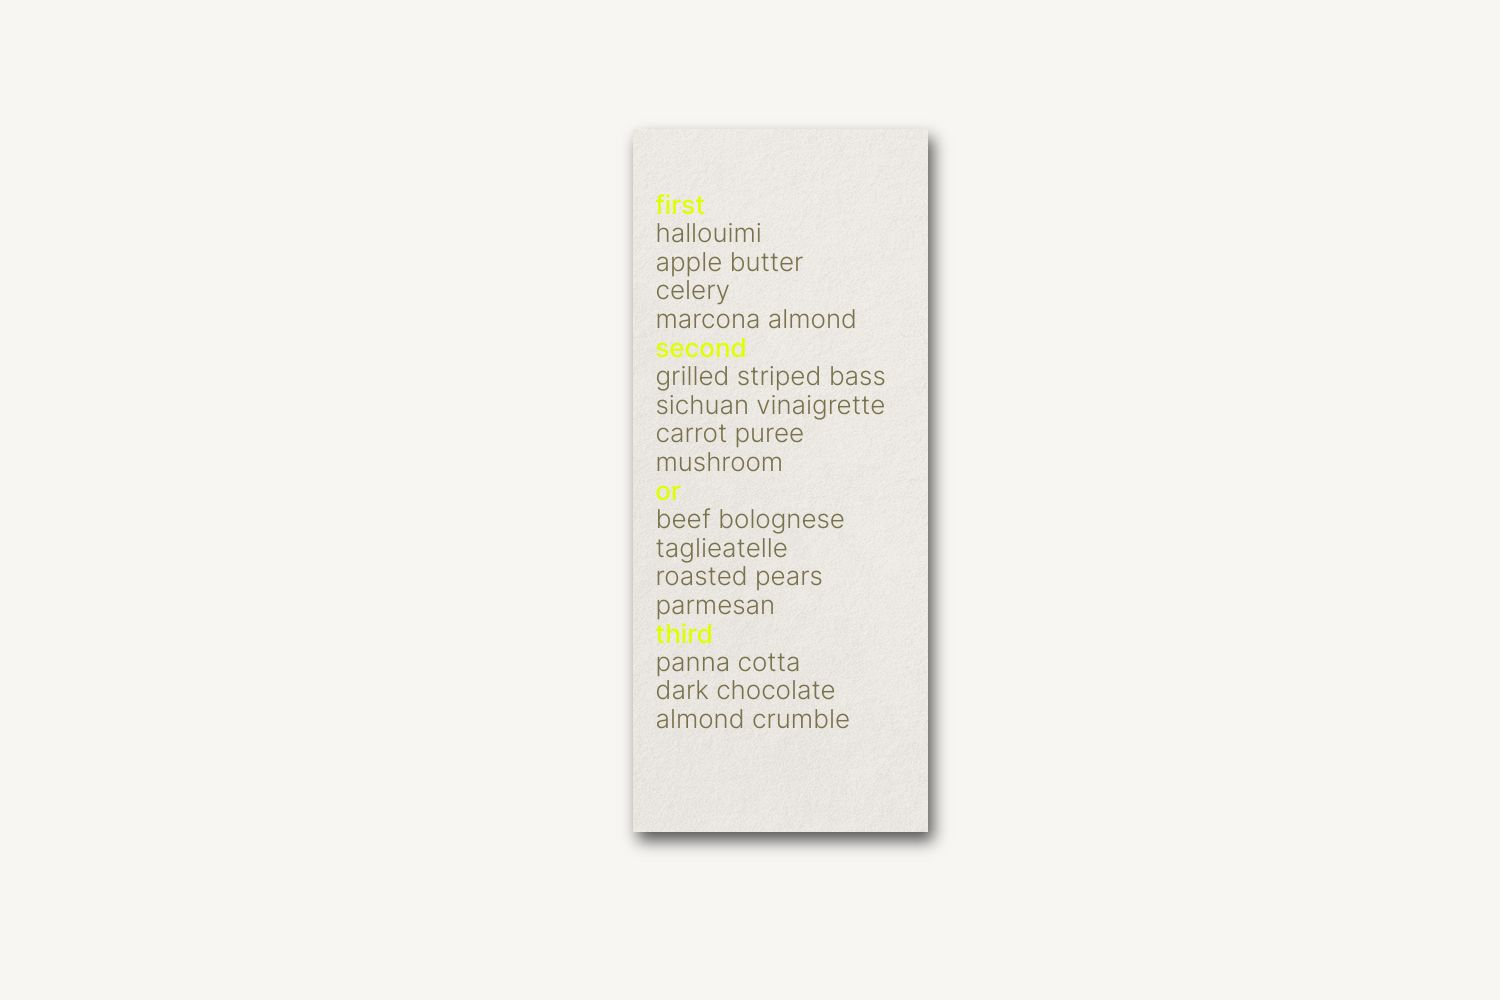 first
hallouimi
apple butter
celery
marcona almond
second
grilled striped bass
sichuan vinaigrette
carrot puree
mushroom
or
beef bolognese
taglieatelle
roasted pears
parmesan
third
panna cotta
dark chocolate
almond crumble